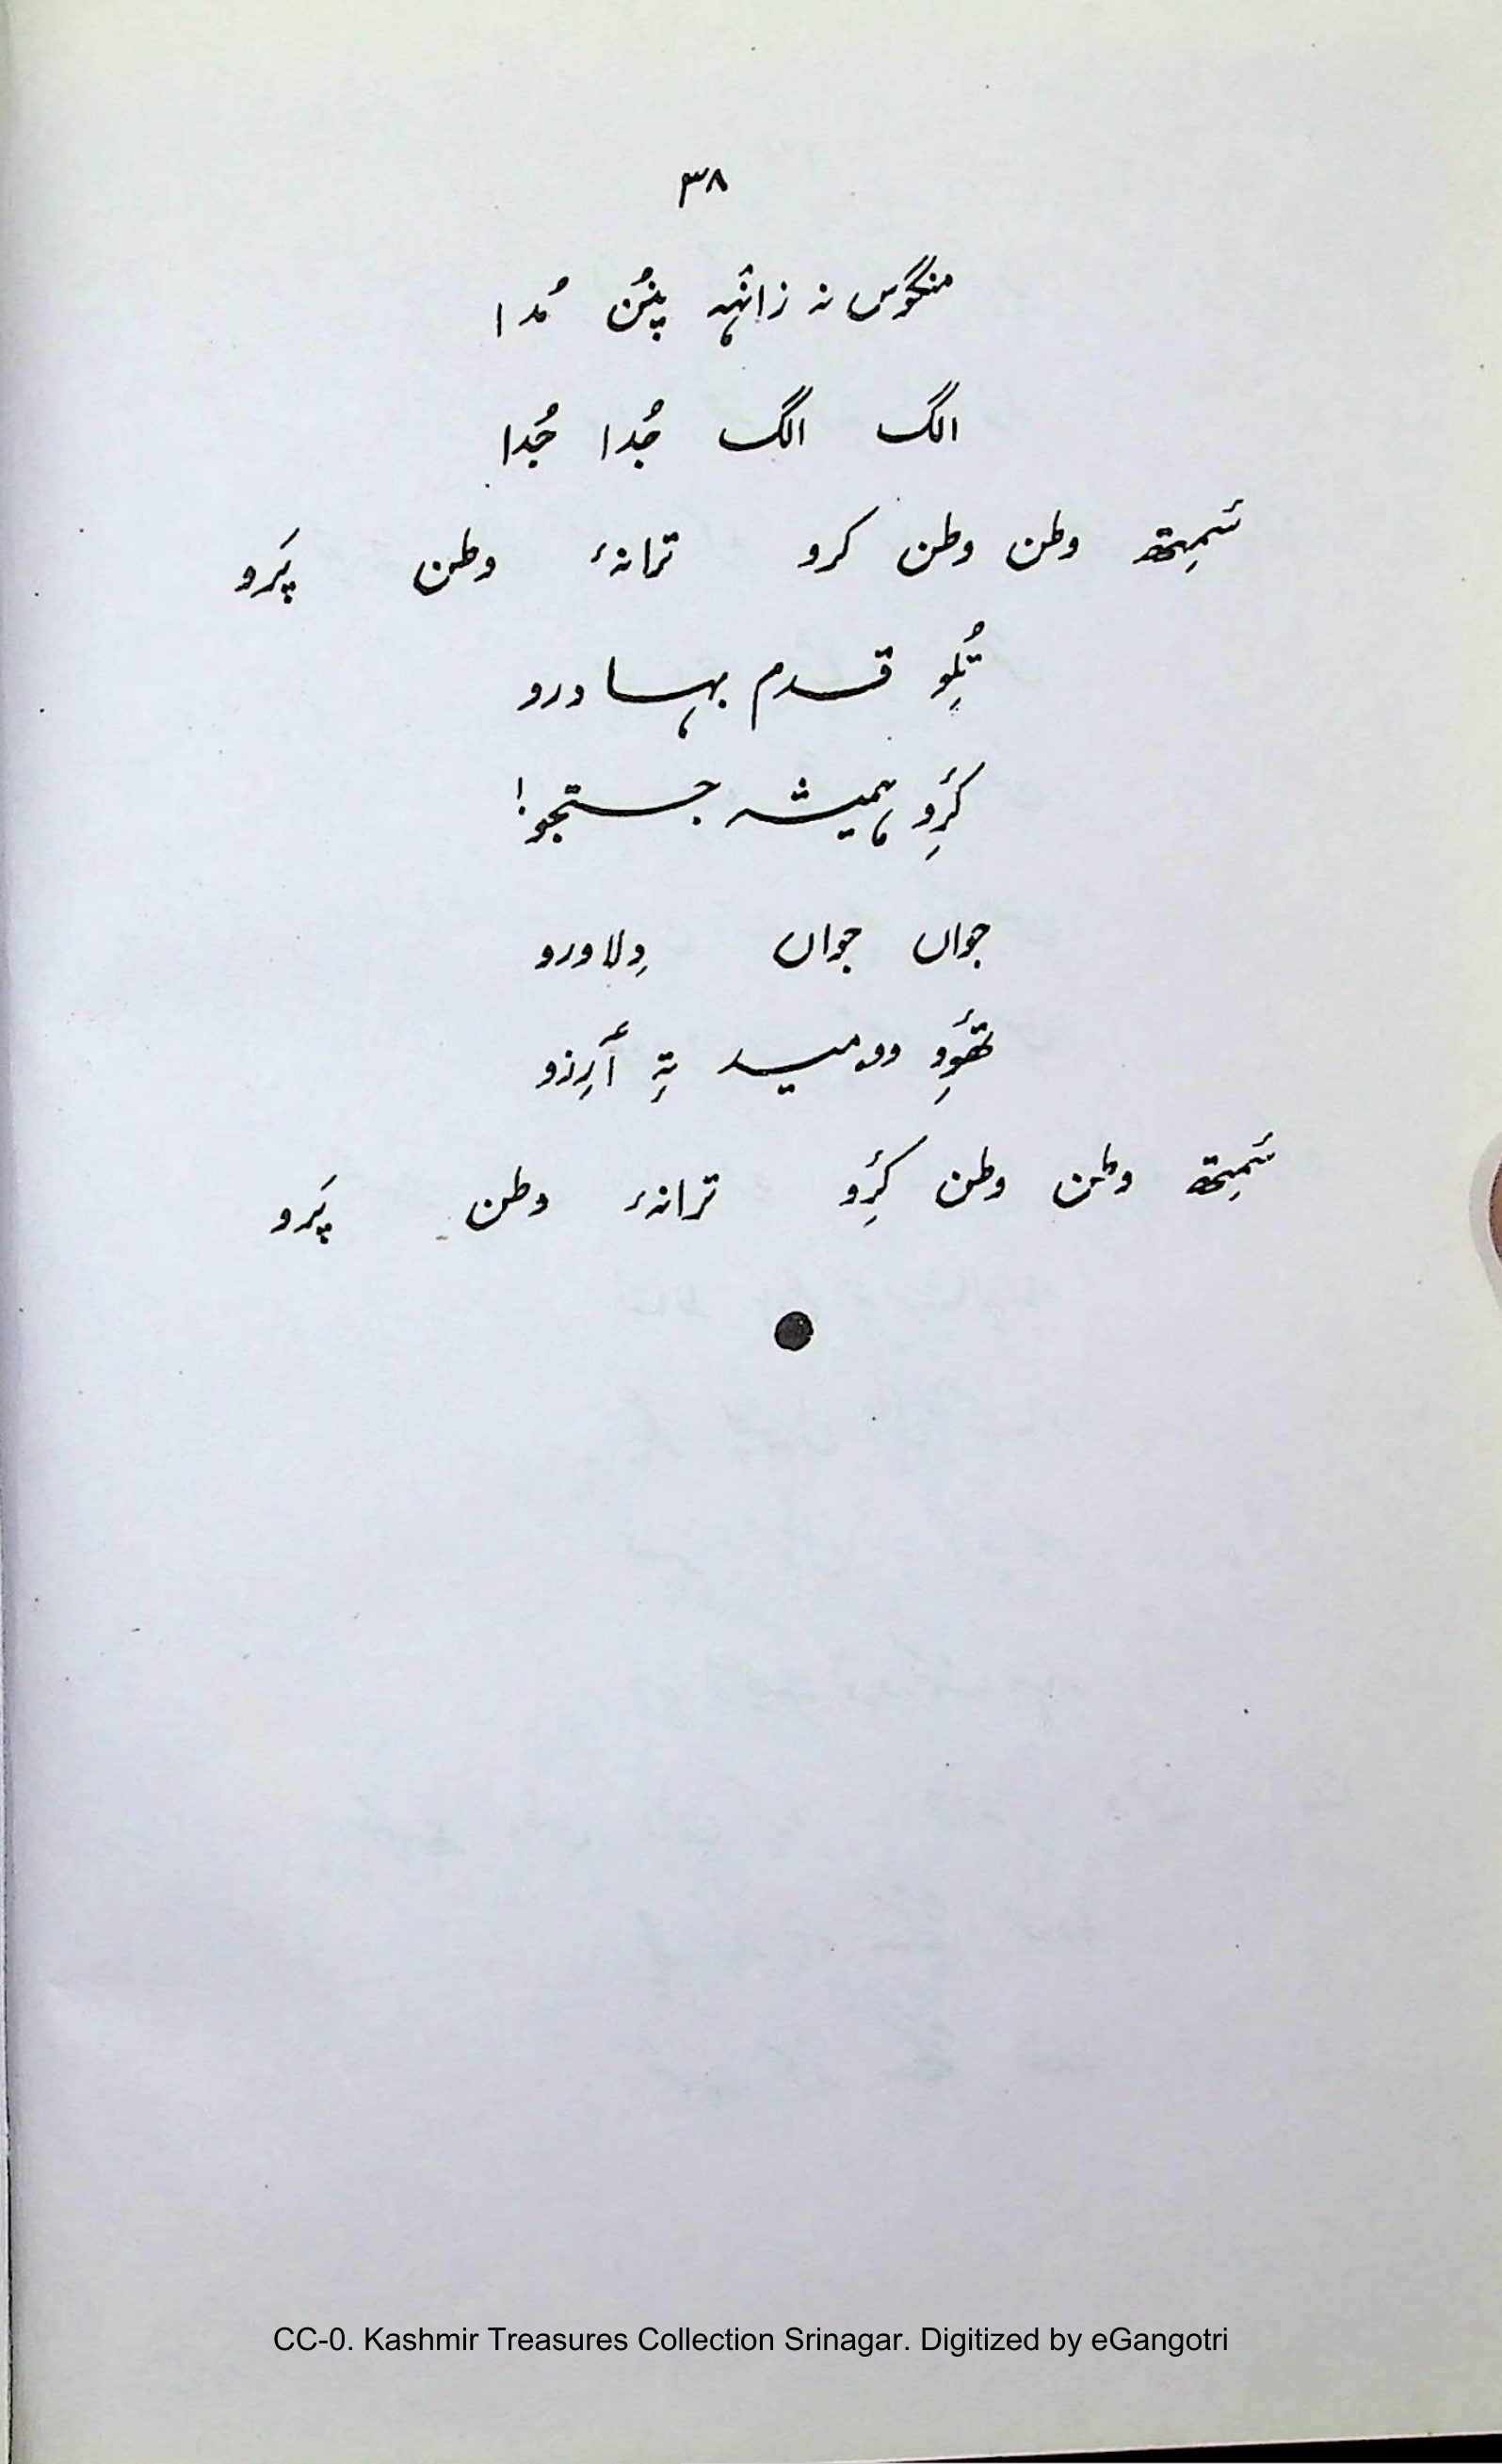 ۳۸
منگوس نہ زانٛہہ پنُن مُدا
الگ الگ جُدا جُدا
سَمِتھ وطن وطن کرو ترانۂ وطن پَرو
تُلِو قدم بہادرو
کَرِو ہمیشہ جستجو!
جواں جواں دِلاورو
تھَوِو وومید تہِ آرِزو
سَمِتھ وطن وطن کَرِو ترانۂ وطن پَرو
CC-0. Kashmir Treasures Collection Srinagar. Digitized by eGangotri